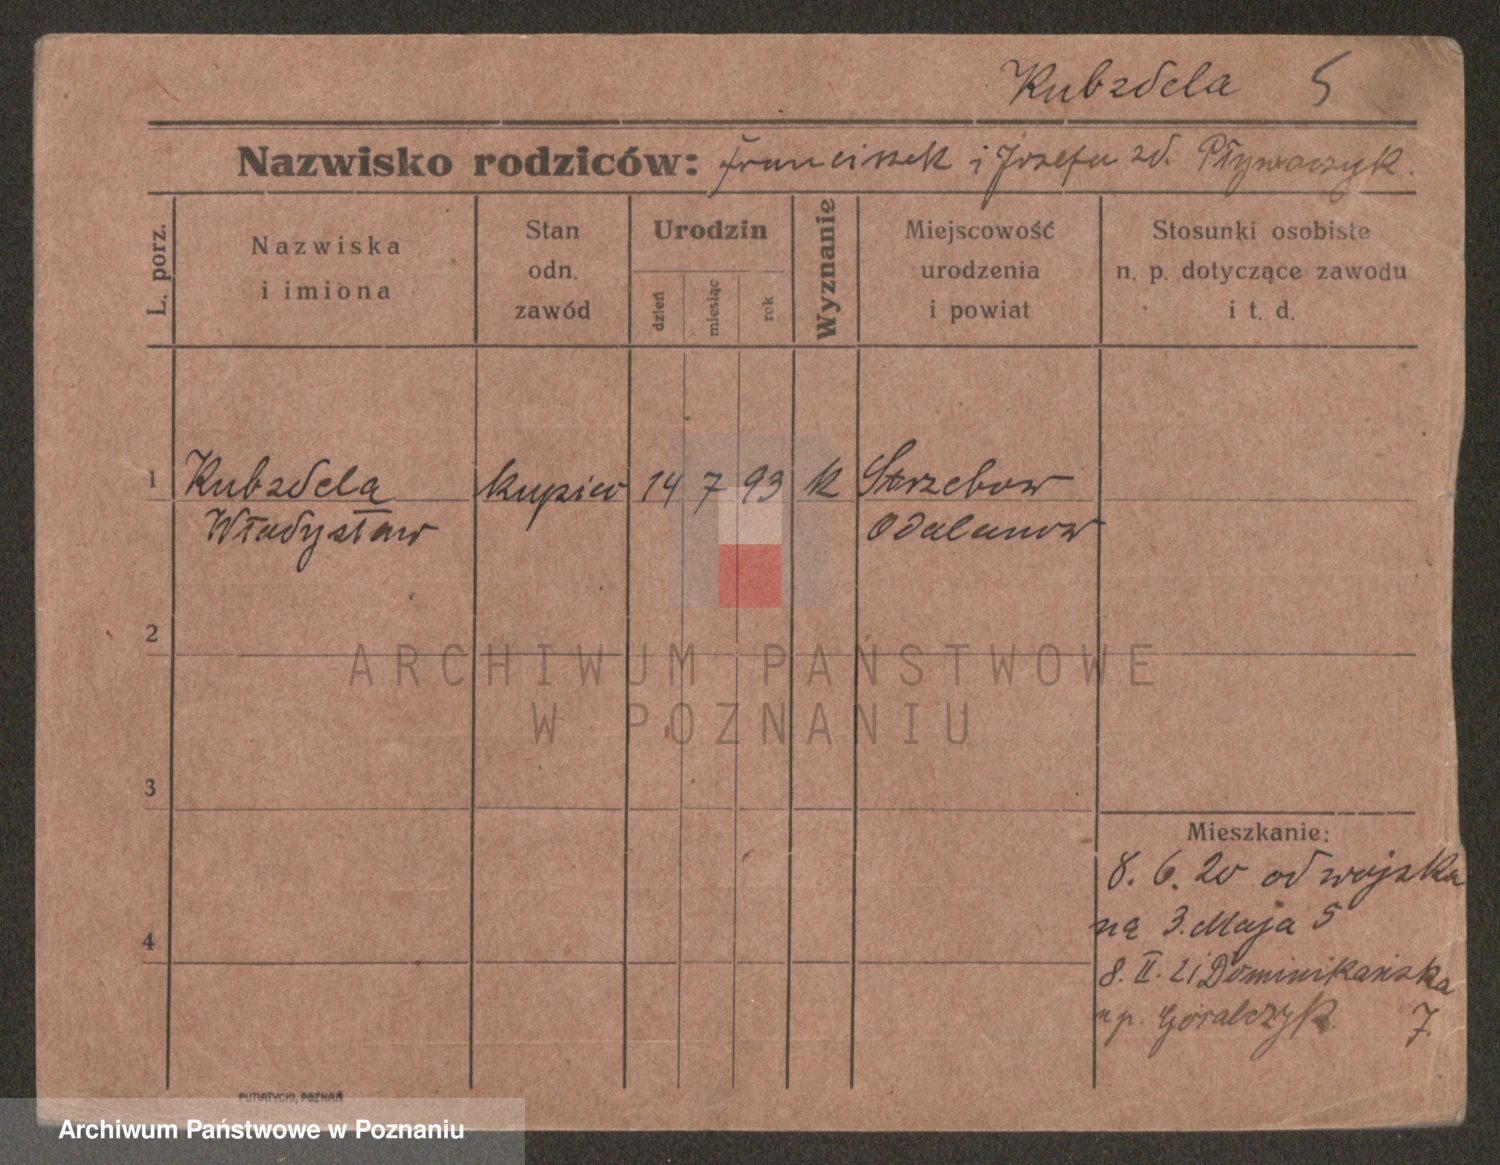 Kubzdela 5
Nazwisko rodziców: Franciszek i Józefa zd. Pływaczyk.
L. porz.
Nazwiska
i imiona
Stan
odn.
zawód
Urodzin
dzień
miesiąc
rok
Wyznanie
Miejscowość
urodzenia
i powiat
Stosunki osobiste
n. p. dotyczące zawodu
i t. d.
1 Kubzdela kupiec 14 7 93 k Strzebow
Władysław Odolanow
2
ARCHIWUM PAŃSTWOWE
W POZNANIU
3
Mieszkanie:
8. 6. 20 od wojska
na 3. Maja 5
4
8. II. 21 Dominikańska
u p. Góralczyk 7.
PUTIATYCKI, POZNAŃ
Archiwum Państwowe w Poznaniu